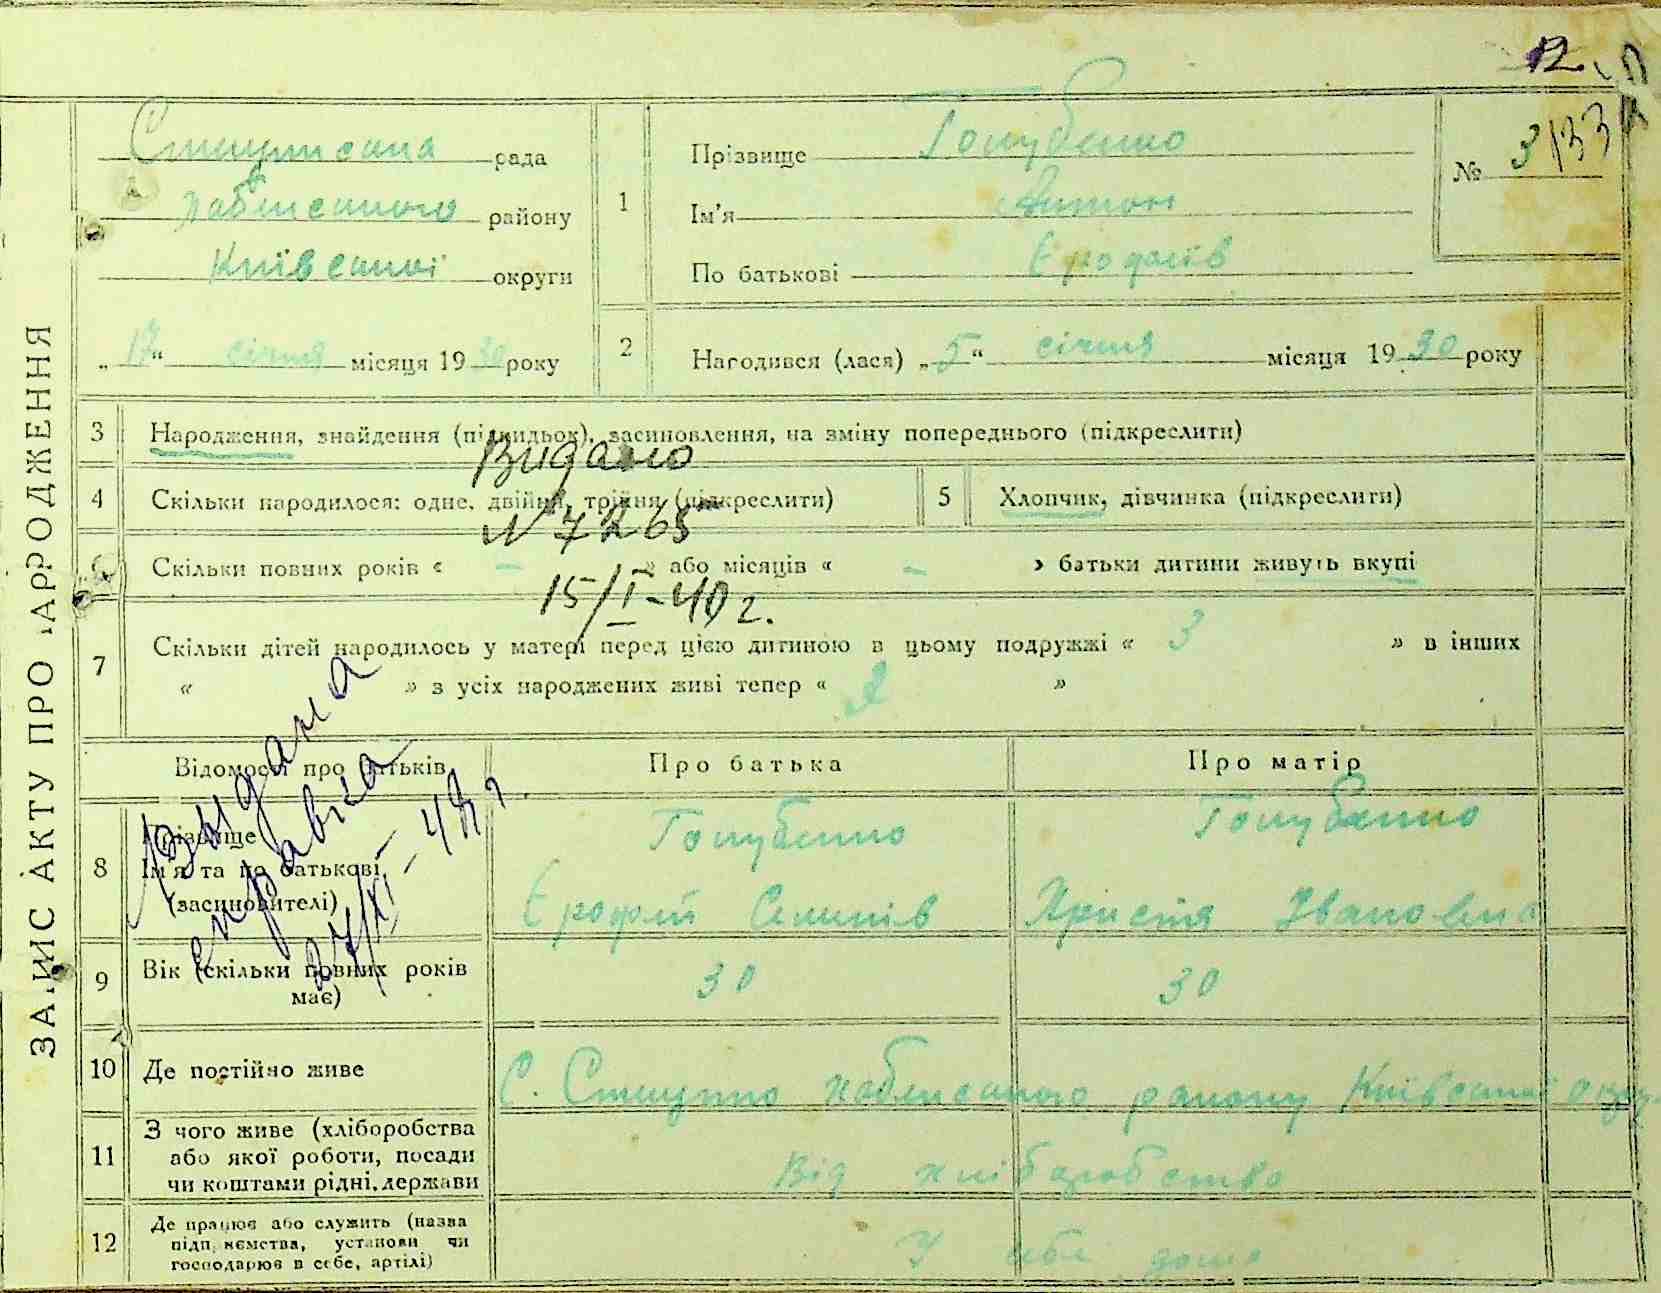 12.
ЗАПИС АКТУ ПРО НАРОДЖЕННЯ
рада
району
Київської округи
„17“ січня місяця 1930 року
1
Прізвище Голубенко
Ім'я Антон
По батькові Єрофіїв
№ 3/33
2 Народився (лася) „5“ січня місяця 1930 року
3 Народження, знайдення (підкидьок), засиновлення, на зміну попереднього (підкреслити)
Видано
4 Скільки народилося: одне, двійня, трійня (підкреслити)
5 Хлопчик, дівчинка (підкреслити)
№ 7265
6 Скільки повних років « – » або місяців « – » батьки дитини живуть вкупі
15/I-40 г.
7 Скільки дітей народилось у матері перед цією дитиною в цьому подружжі « 3 » в інших
« » з усіх народжених живі тепер « 2 »
Выдана
справка
27/XI-48 г
Відомості про батьків Про батька Про матір
8 Прізвище Голубенко Голубенко
Ім'я та по батькові Єрофій Семенів Христя Івановна
(засиновителі)
9 Вік (скільки повних років має) 30 30
10 Де постійно живе С. району Київської округ
11 З чого живе (хліборобства
або якої роботи, посади
чи коштами рідні, держави Від хліборобства
12 Де працює або служить (назва
підприємства, установи чи
господарює в себе, артілі) У себе дома